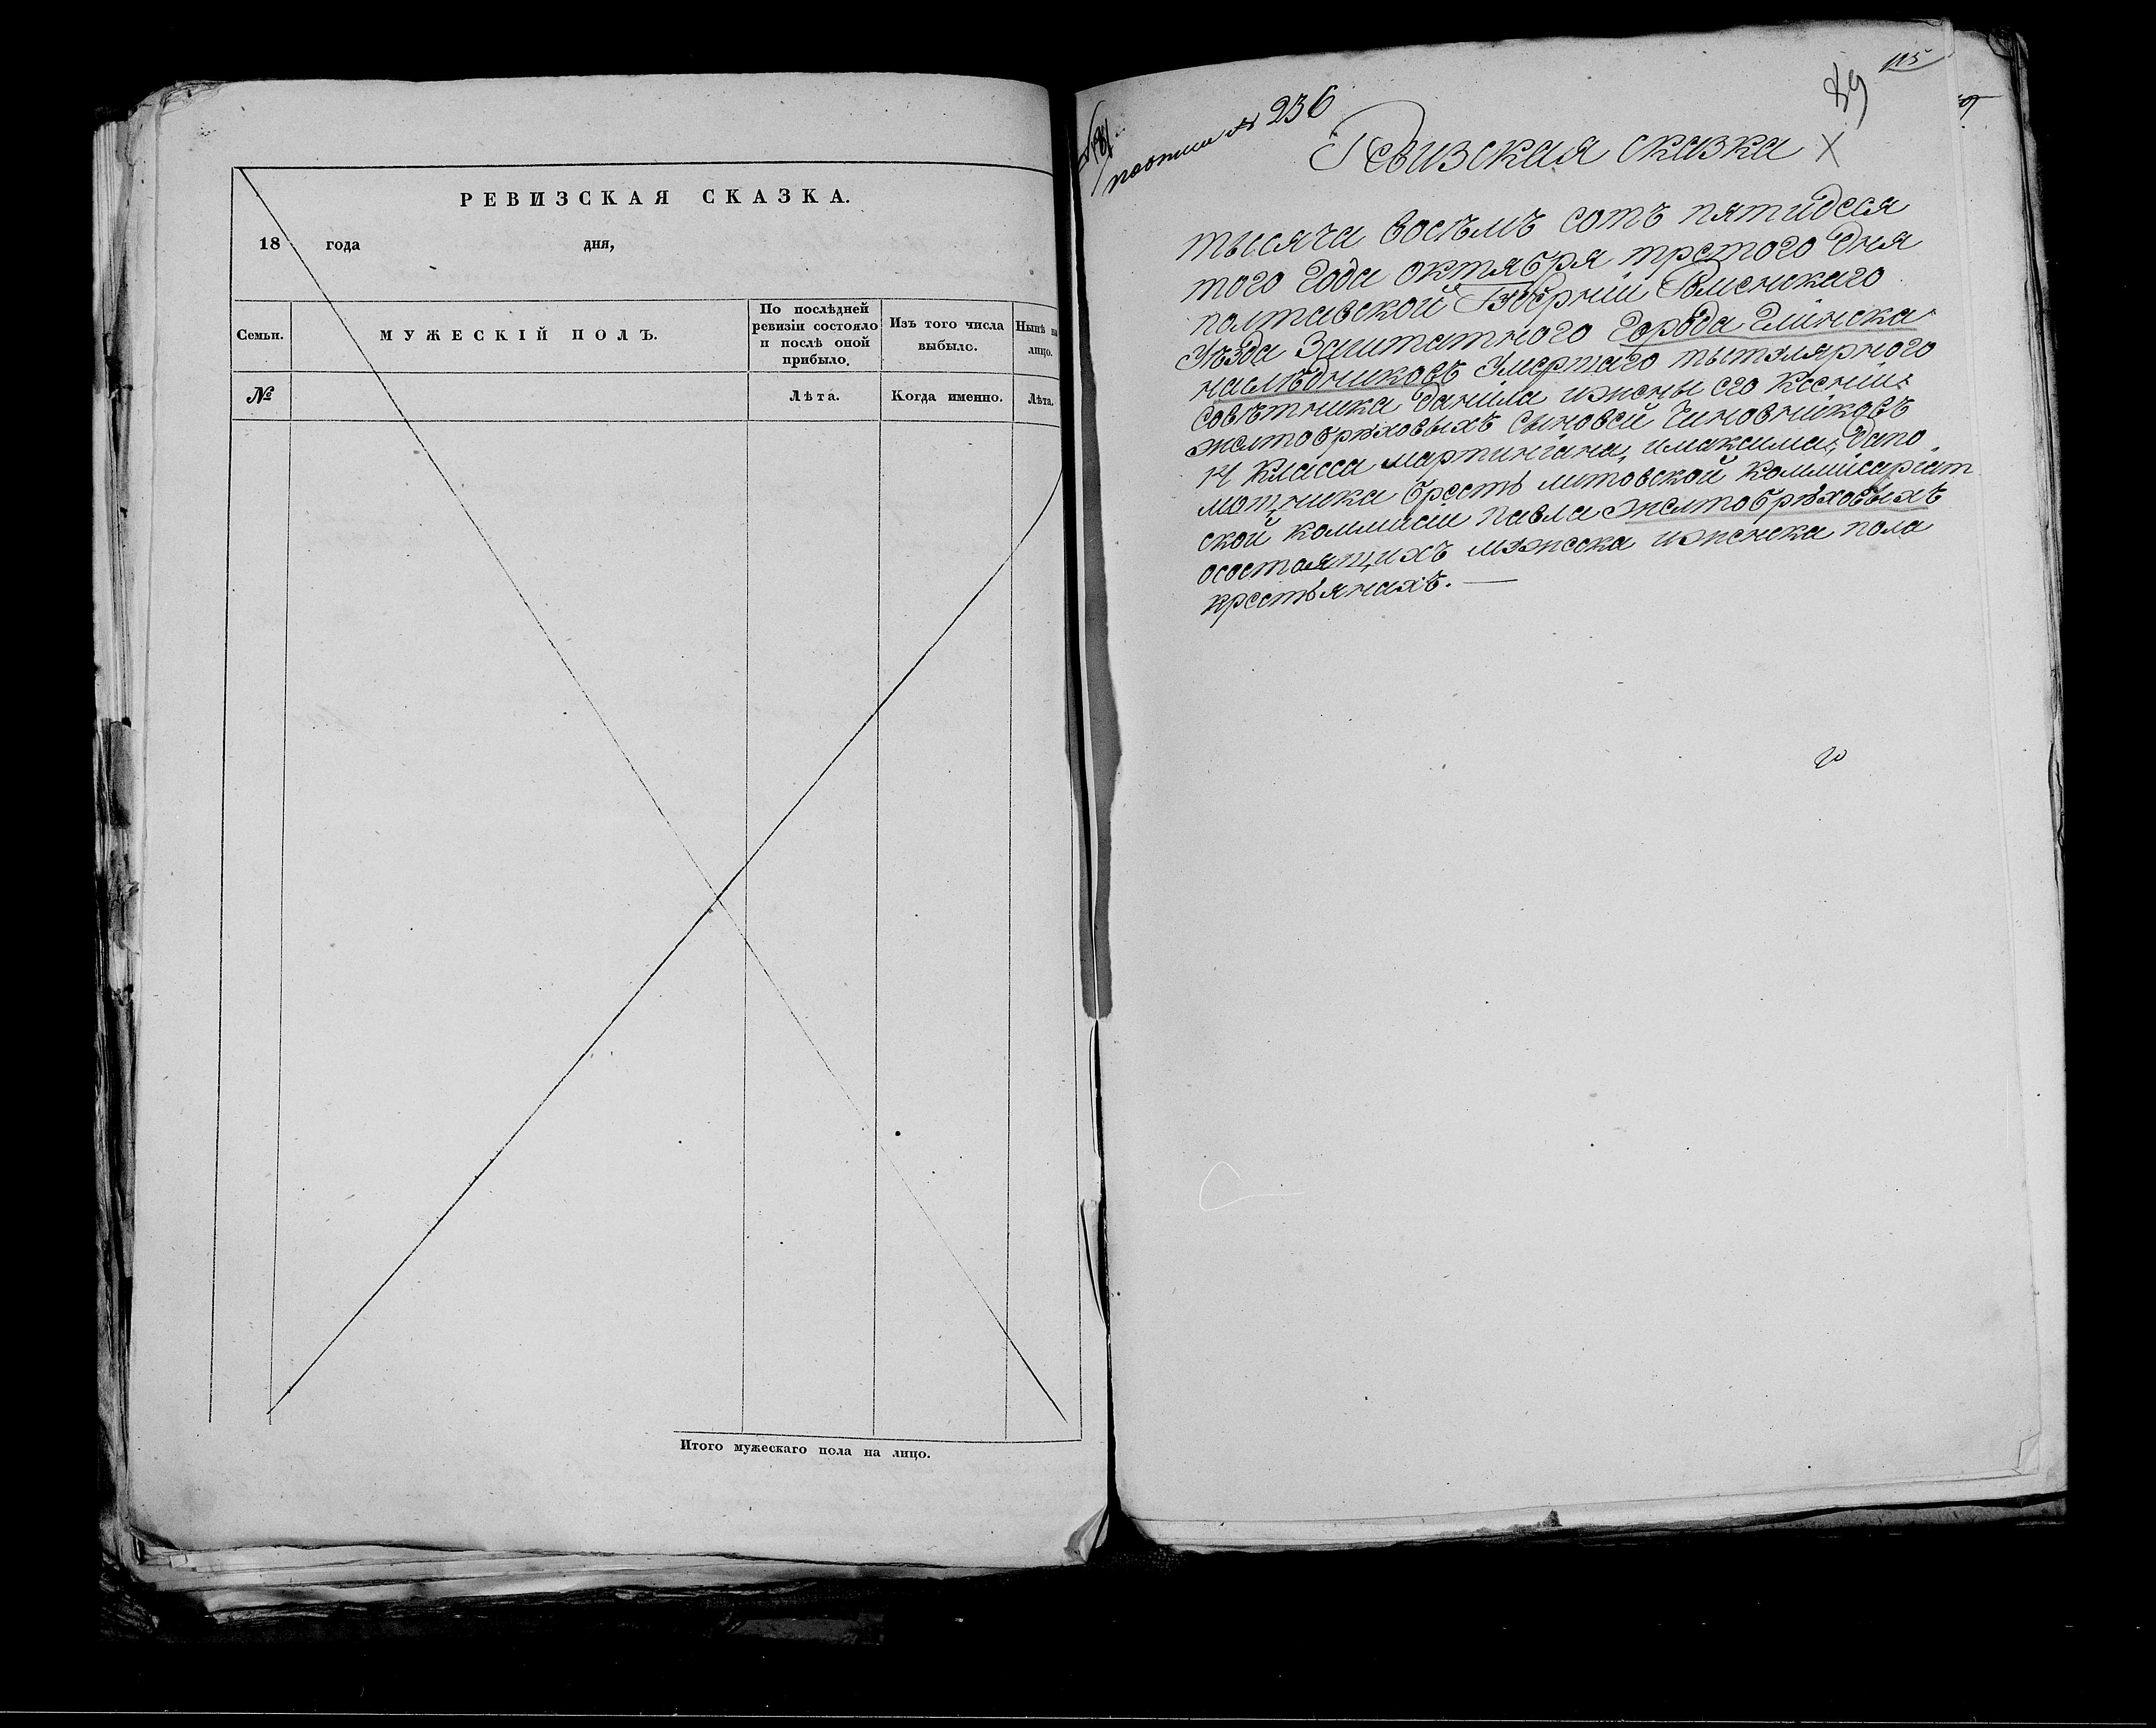 РЕВИЗСКАЯ СКАЗКА.
18 года дня,
Семьи.
МУЖЕСКІЙ ПОЛЪ.
По послѣдней
ревизіи состояло
и послѣ оной
прибыло.
Изъ того числа
выбыло.
Нынѣ на
лицо.
№
Лѣта.
Когда именно.
Лѣта.
Итого мужескаго пола на лицо.
115
89
№ 236
Ревизская сказка
тысяча восѣмъ сотъ пятидеся
того года октября третого дня
полтавской Губѣрніи Роменскаго
Уѣзда Заштатного города Глинска
наслѣдниковъ Умершаго тытулярного
совѣтника Даніила ижены его Ксеніи:
желтобрюховыхъ сыновей Чиновниковъ
14 класса мартиніана, имаксима, дапо
мотчика брестъ литовской коммисаріат
ской коммисіи павла желтобрюховыхъ
осостоящихъ мужеска иженска пола
крестьянахъ.